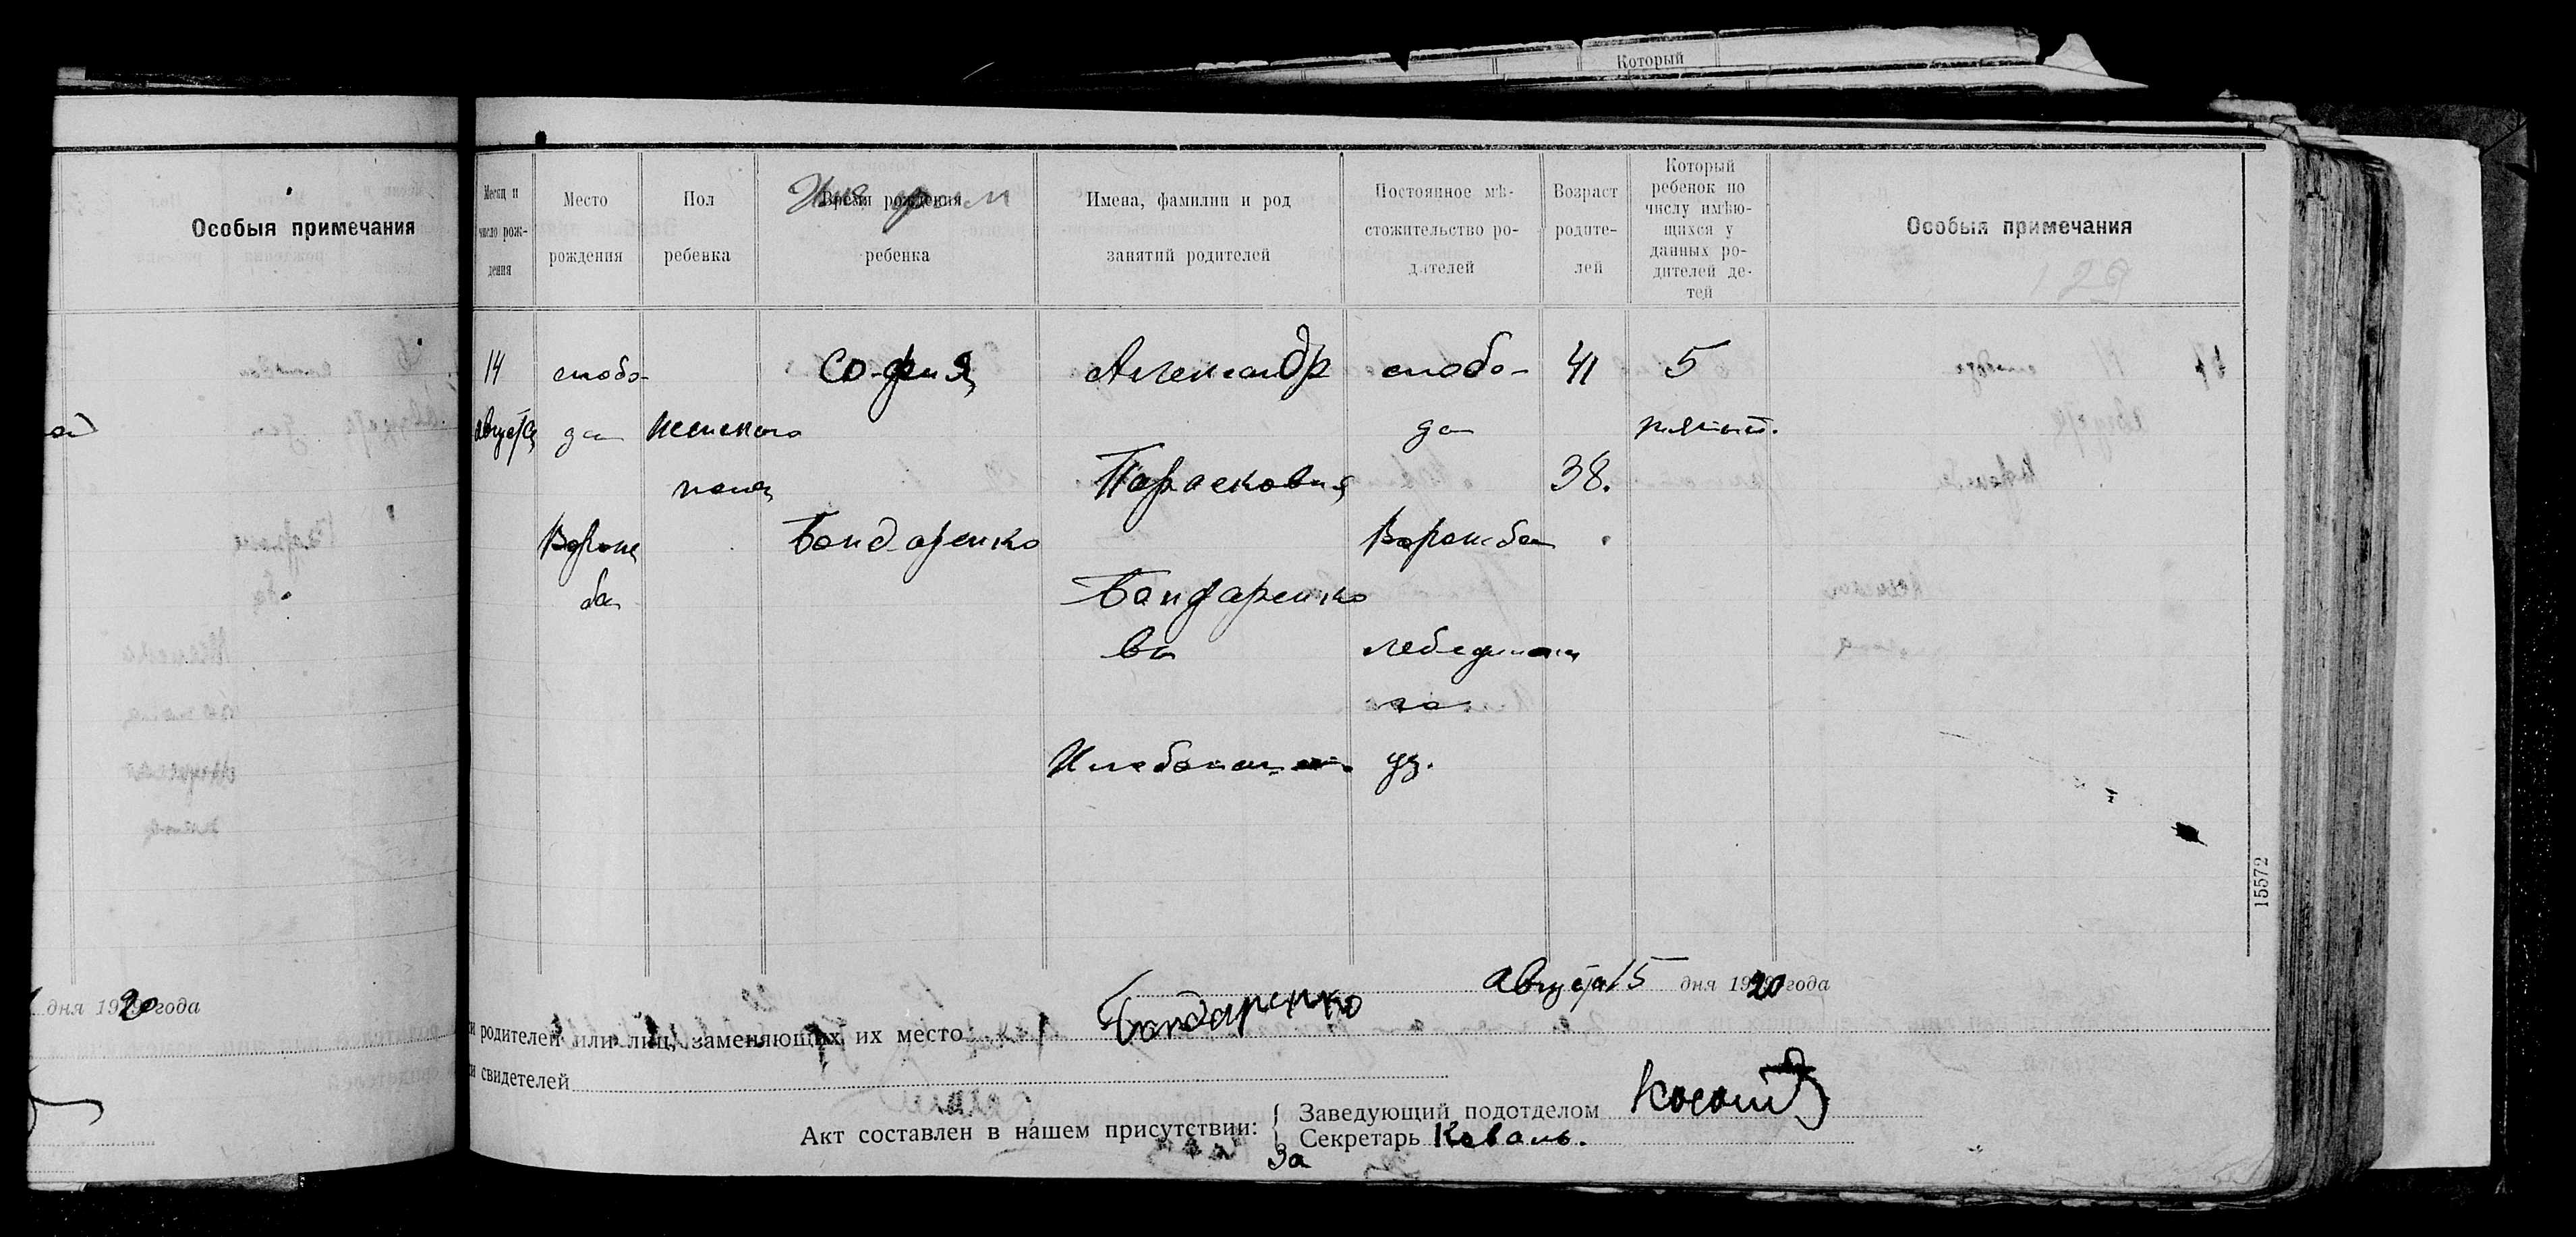 Который
Особыя примечания
дня 1920 года
Месяц и число рождения
Место рождения
Пол ребенка
Время рождения ребенка
Имена, фамилии и род занятий родителей
Постоянное мѣстожительство родителей
Возраст родителей
Который ребенок по числу имѣющихся у данных родителей детей
Особыя примечания
129
14 слобо- София Александр слобо- 41 5
августа да женского да пятый.
пола Парасковия 38.
Ворож Бондаренко Ворожба
ба Бондаренко
вы Лебединска
го
Хлебопашец уз.
15572
Августа 15 дня 1920 года
и родителей или лиц, заменяющих их место Бондаренко
и свидетелей
Акт составлен в нашем присутствии:
Заведующий подотделом
Секретарь Коваль.
За